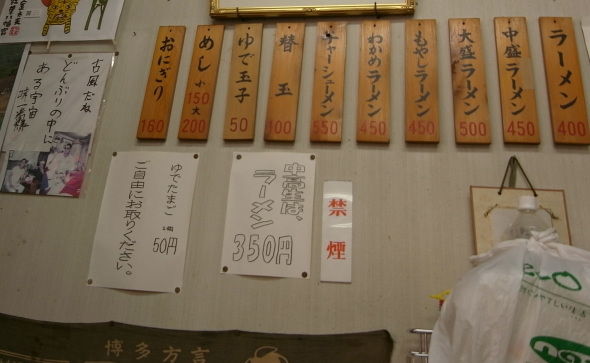 ラーメン
400
中盛ラーメン
450
大盛ラーメン
500
もやしラーメン
450
わかめラーメン
450
チャーシューメン
550
替玉
100
ゆで玉子
50
めし
小 150
大 200
おにぎり
160
古風だね
どんぶりの中に
ある宇宙
中高生は、
ラーメン
350円
禁煙
ゆでたまご
50円
ご自由にお取りください。
博多方言